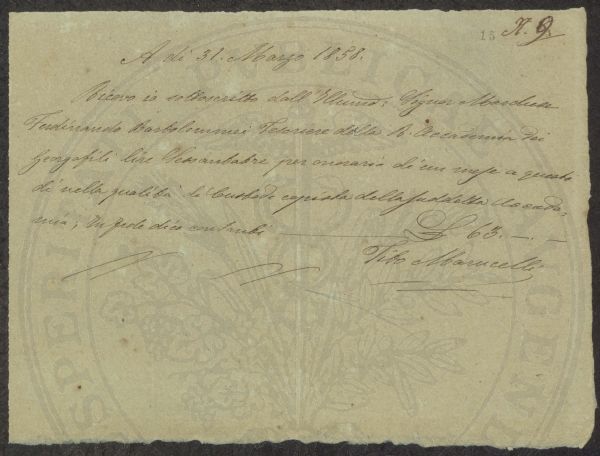 15 N. 9.
A dì 31. Marzo 1858.
Ricevo io sottoscritto dall'Illmo: Signor Marchese
Ferdinando Bartolommei Tesoriere della R. Accademia dei
Georgofili lire Sessantatre per onorario di un mese a questo
dì nella qualità di Custode copista della suddetta Accade-
mia; In fede dico contanti £ 63. — . —
Tito Marucelli
PUBLICA
PROSPERI